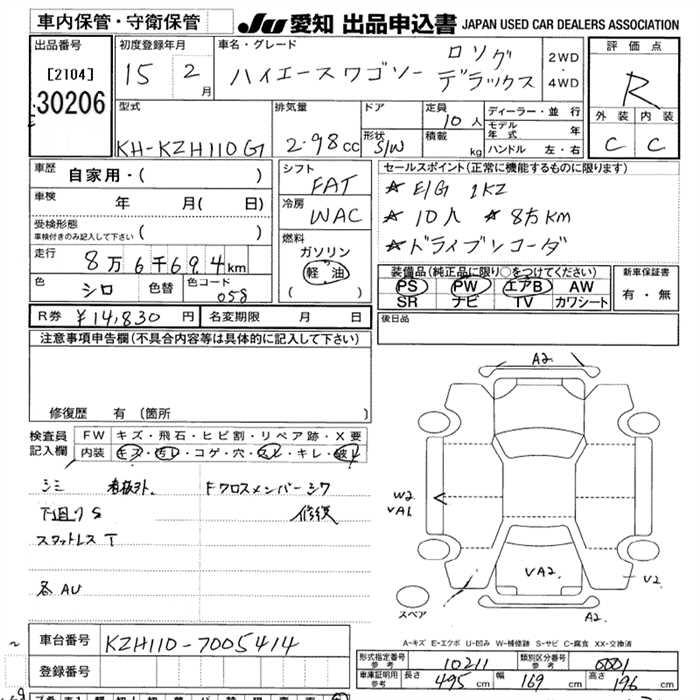 車内保管・守衛保管
JU 愛知 出品申込書 JAPAN USED CAR DEALERS ASSOCIATION
出品番号
[2104]
30206
初度登録年月
15 2月
車名・グレード
ハイエースワゴン
ロング
デラックス
2WD
4WD
評価点
R
外装 内装
C C
型式
KH-KZH110G
排気量
2.98cc
ドア
形状
S/W
定員
10人
積載
kg
ディーラー・並行
モデル年式 年
ハンドル 左・右
車歴
自家用・( )
車検
年 月( 日)
受検形態
車検付きのみ記入して下さい ( )
走行
8万6千694km
色
シロ
色替
色コード
058
シフト
FAT
冷房
WAC
燃料
ガソリン
軽油
( )
セールスポイント(正常に機能するものに限ります)
★ E/G 1KZ
★ 10人 ★ 8万KM
★ ドライブレコーダ
装備品(純正品に限り○をつけてください)
PS PW エアB AW
SR ナビ TV カワシート
新車保証書
有・無
R券 ¥14,830円
名変期限 月 日
後日品
注意事項申告欄(不具合内容等は具体的に記入して下さい)
修復歴 有(箇所 )
検査員
記入欄
FW キズ・飛石・ヒビ割・リペア跡・X要
内装 キズ・汚レ・コゲ・穴・スレ・キレ・破レ
シミ
Fクロスメンバーシワ
修復
下廻りS
スタットレスT
各AU
A2
W2
VA1
VA2
V2
A2
スペア
A-キズ E-エクボ U-凹み W-補修跡 S-サビ C-腐食 XX-交換済
車台番号
KZH110-7005414
登録番号
形式指定番号
参考
10211
類別区分番号
参考
0001
車庫証明用
参考
長さ 495cm
幅 169cm
高さ 196cm